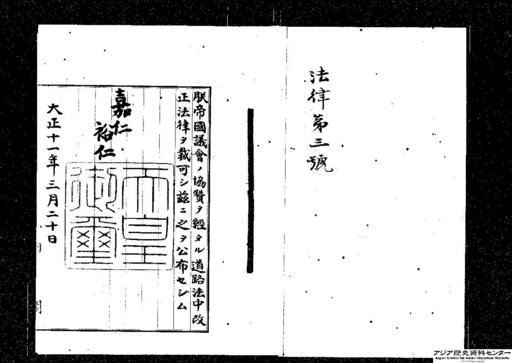 法律第三號
朕帝國議會ノ協贊ヲ經タル道路法中改
正法律ヲ裁可シ茲ニ之ヲ公布セシム
嘉仁
裕仁
天皇
御璽
大正十一年三月二十日
アジア歴史資料センター
Japan Center for Asian Historical Records